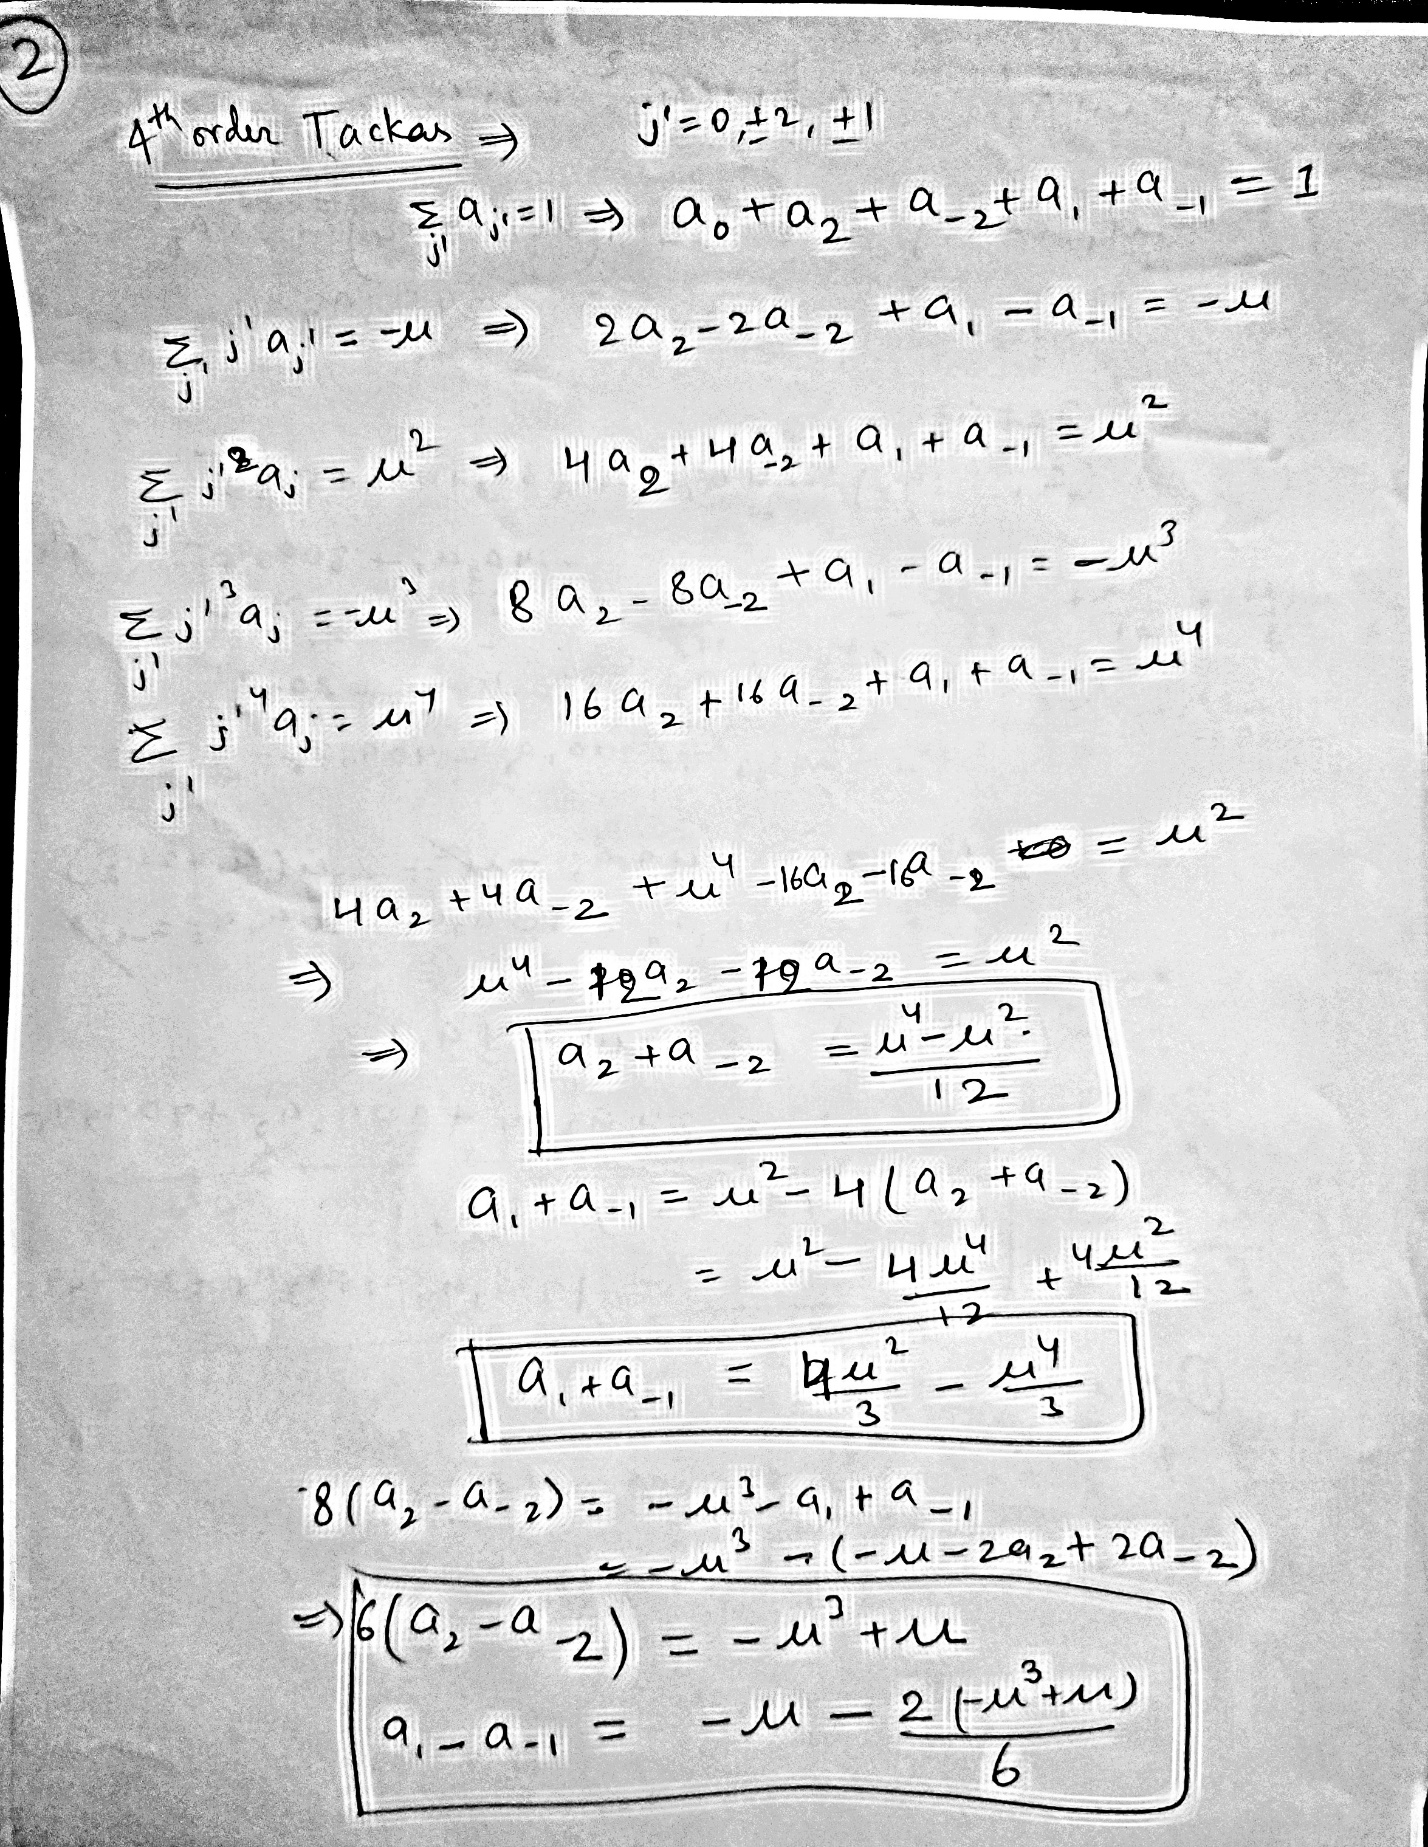 2
4th order Tackas ⇒ j' = 0, ±2, ±1
Σ_{j'} a_{j'} = 1 ⇒ a_0 + a_2 + a_{-2} + a_1 + a_{-1} = 1
Σ_{j'} j' a_{j'} = -μ ⇒ 2a_2 - 2a_{-2} + a_1 - a_{-1} = -μ
Σ_{j'} j'^2 a_j = μ^2 ⇒ 4a_2 + 4a_{-2} + a_1 + a_{-1} = μ^2
Σ_{j'} j'^3 a_j = -μ^3 ⇒ 8a_2 - 8a_{-2} + a_1 - a_{-1} = -μ^3
Σ_{j'} j'^4 a_j = μ^4 ⇒ 16a_2 + 16a_{-2} + a_1 + a_{-1} = μ^4
4a_2 + 4a_{-2} + μ^4 - 16a_2 - 16a_{-2} = μ^2
⇒ μ^4 - 12a_2 - 12a_{-2} = μ^2
⇒ a_2 + a_{-2} = (μ^4 - μ^2)/12
a_1 + a_{-1} = μ^2 - 4(a_2 + a_{-2})
= μ^2 - 4μ^4/12 + 4μ^2/12
a_1 + a_{-1} = 4μ^2/3 - μ^4/3
8(a_2 - a_{-2}) = -μ^3 - a_1 + a_{-1}
= -μ^3 - (-μ - 2a_2 + 2a_{-2})
⇒ 6(a_2 - a_{-2}) = -μ^3 + μ
a_1 - a_{-1} = -μ - 2(-μ^3 + μ)/6